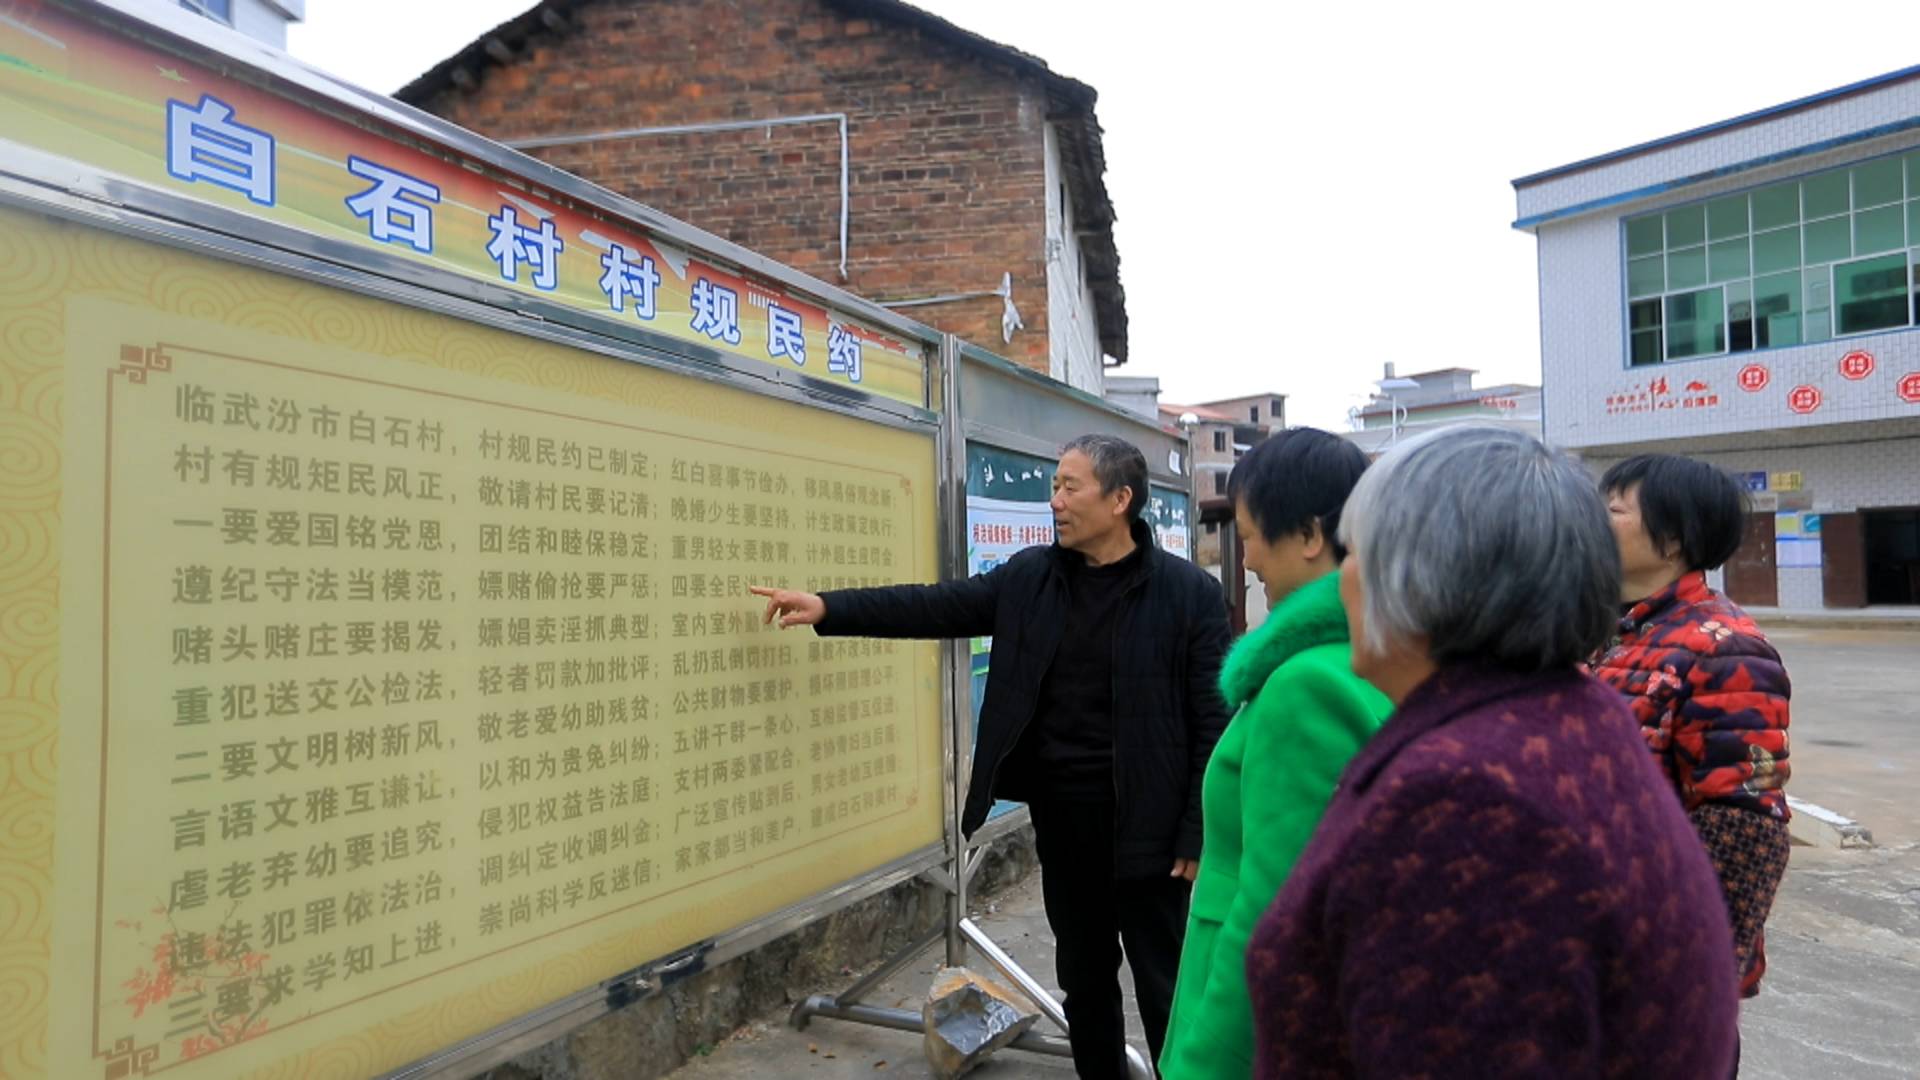 白石村村规民约
临武汾市白石村，村规民约已制定；红白喜事节俭办，移风易俗观念新；
村有规矩民风正，敬请村民要记清；晚婚少生要坚持，计生政策定执行；
一要爱国铭党恩，团结和睦保稳定；重男轻女要教育，计外超生应罚金；
遵纪守法当模范，嫖赌偷抢要严惩；四要全民讲卫生
赌头赌庄要揭发，嫖娼卖淫抓典型；室内室外勤
重犯送交公检法，轻者罚款加批评；乱扔乱倒罚打扫，屡教不改写保证；
二要文明树新风，敬老爱幼助残贫；公共财物要爱护，损坏照赔增公平；
言语文雅互谦让，以和为贵免纠纷；五讲干群一条心，互相监督互促进；
虐老弃幼要追究，侵犯权益告法庭；支村两委紧配合，老协青妇当后盾；
违法犯罪依法治，调纠定收调纠金；广泛宣传贴到后，男女老幼互提醒；
三要求学知上进，崇尚科学反迷信；家家都当和美户，建成白石和美村
核心